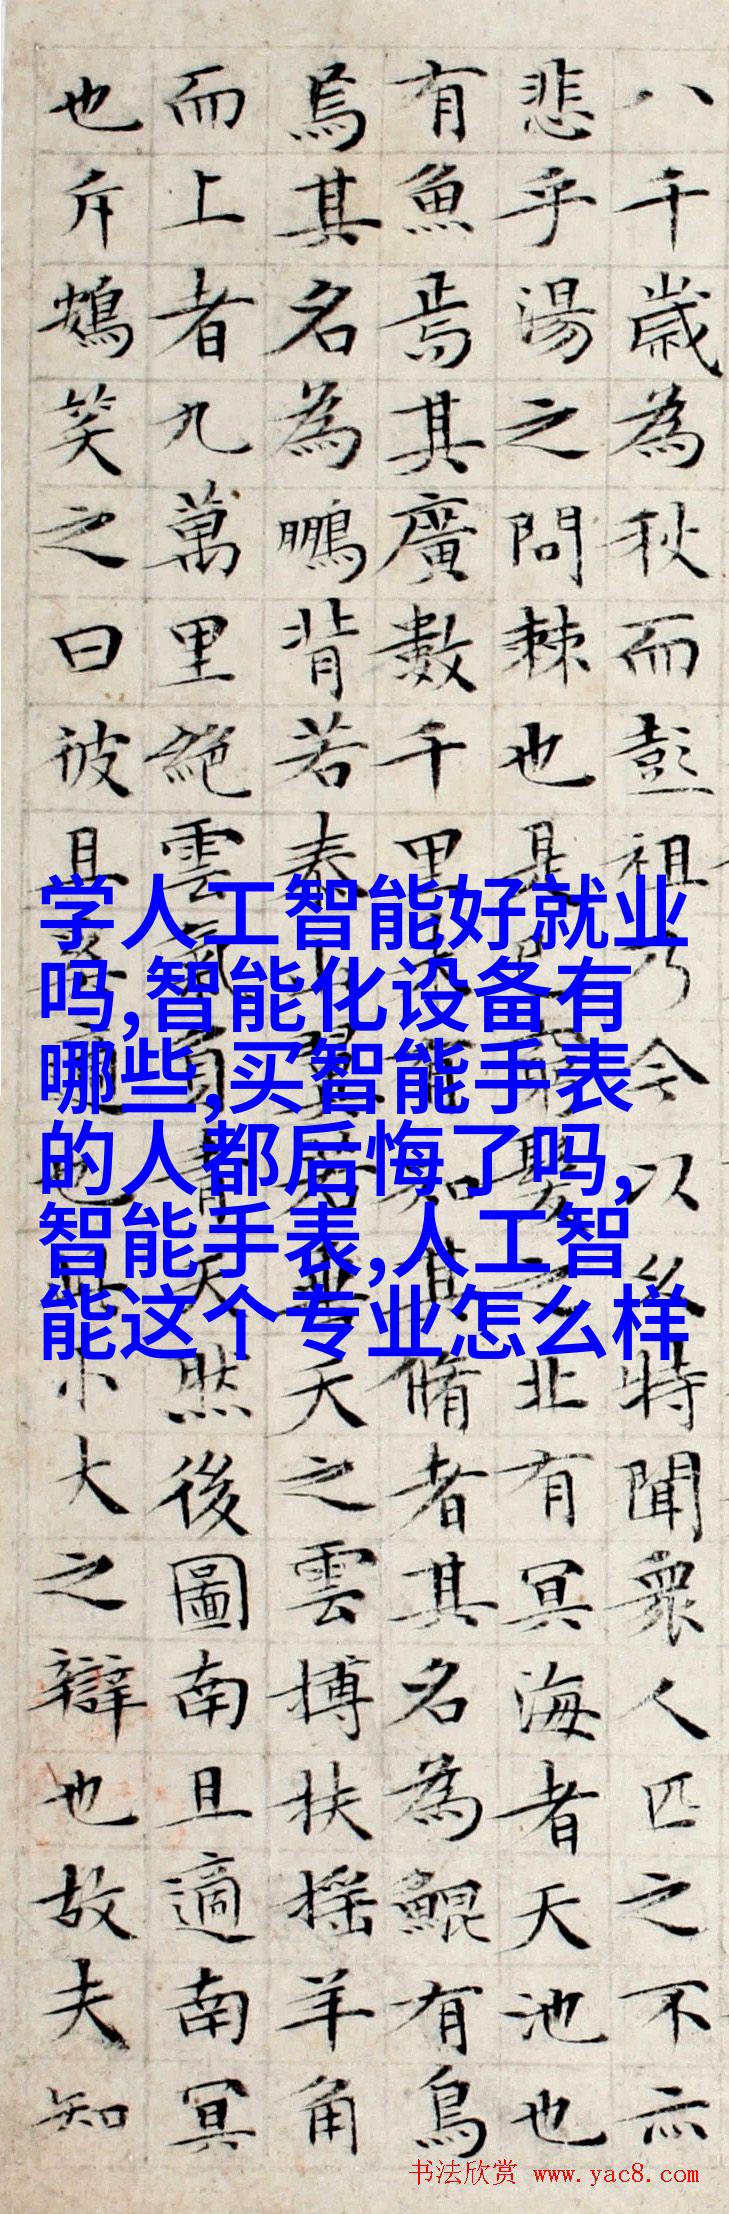 八千歲為秋而彭祖乃今以久特聞衆人匹之不亦
悲乎湯之問棘也是已窮髮之北有冥海者天池也
有魚焉其廣數千里未有知其脩者其名為鯤有鳥
焉其名為鵬背若泰山翼若垂天之雲搏扶搖羊角
而上者九萬里絕雲氣負青天然後圖南且適南冥
也斥鴳笑之曰彼且奚適也此小大之辯也故夫知
学人工智能好就业
吗,智能化设备有
哪些,买智能手表
的人都后悔了吗,
智能手表,人工智
能这个专业怎么样
书法欣赏 www.yac8.com